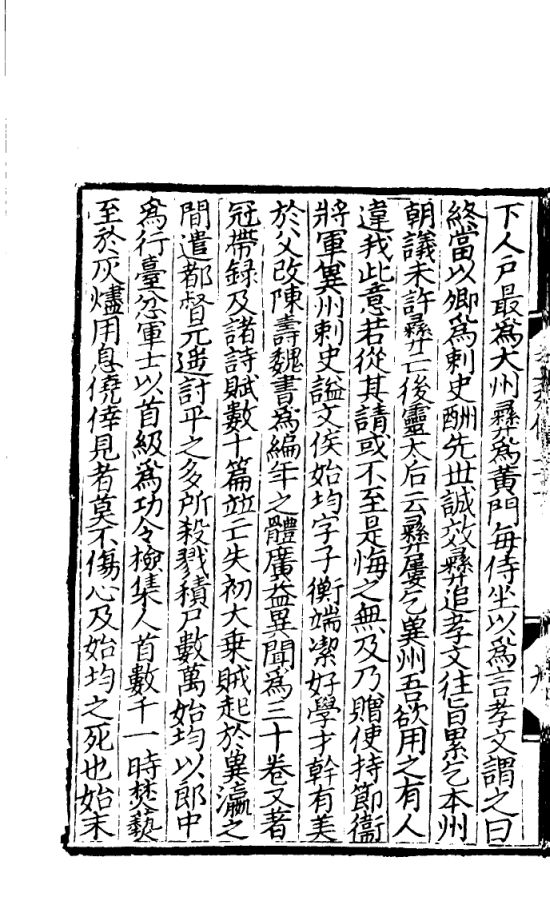 下人戸最爲大州彝爲黄門毎侍坐以爲言孝文謂之曰
終當以卿爲刺史酬先世誠效彝追孝文往旨累乞本州
朝議未許彝亡後靈太后云彝屢乞兾州吾欲用之有人
違我此意若從其請或不至是悔之無及乃贈使持節衞
將軍兾州刺史謚文侯始均字子衡端潔好學才幹有美
於父改陳壽魏書爲編年之體廣益異聞爲三十卷又著
冠帶録及諸詩賦數十篇並亡失初大乗賊起於兾瀛之
間遣都督元遥討平之多所殺戮積尸數萬始均以郎中
爲行臺忿軍士以首級爲功令檢集人首數千一時焚爇
至於灰燼用息僥倖見者莫不傷心及始均之死也始末